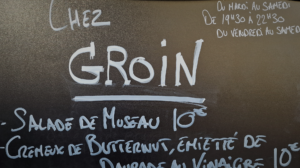 CHEZ
GROIN
DU MARDI AU SAMEDI
DE 19H30 A 22H30
DU VENDREDI AU SAMEDI
- SALADE DE MUSEAU 10€
- CREMEUX DE BUTTERNUT, EMIETTÉ DE
DAURADE AU VINAIGRE 10€